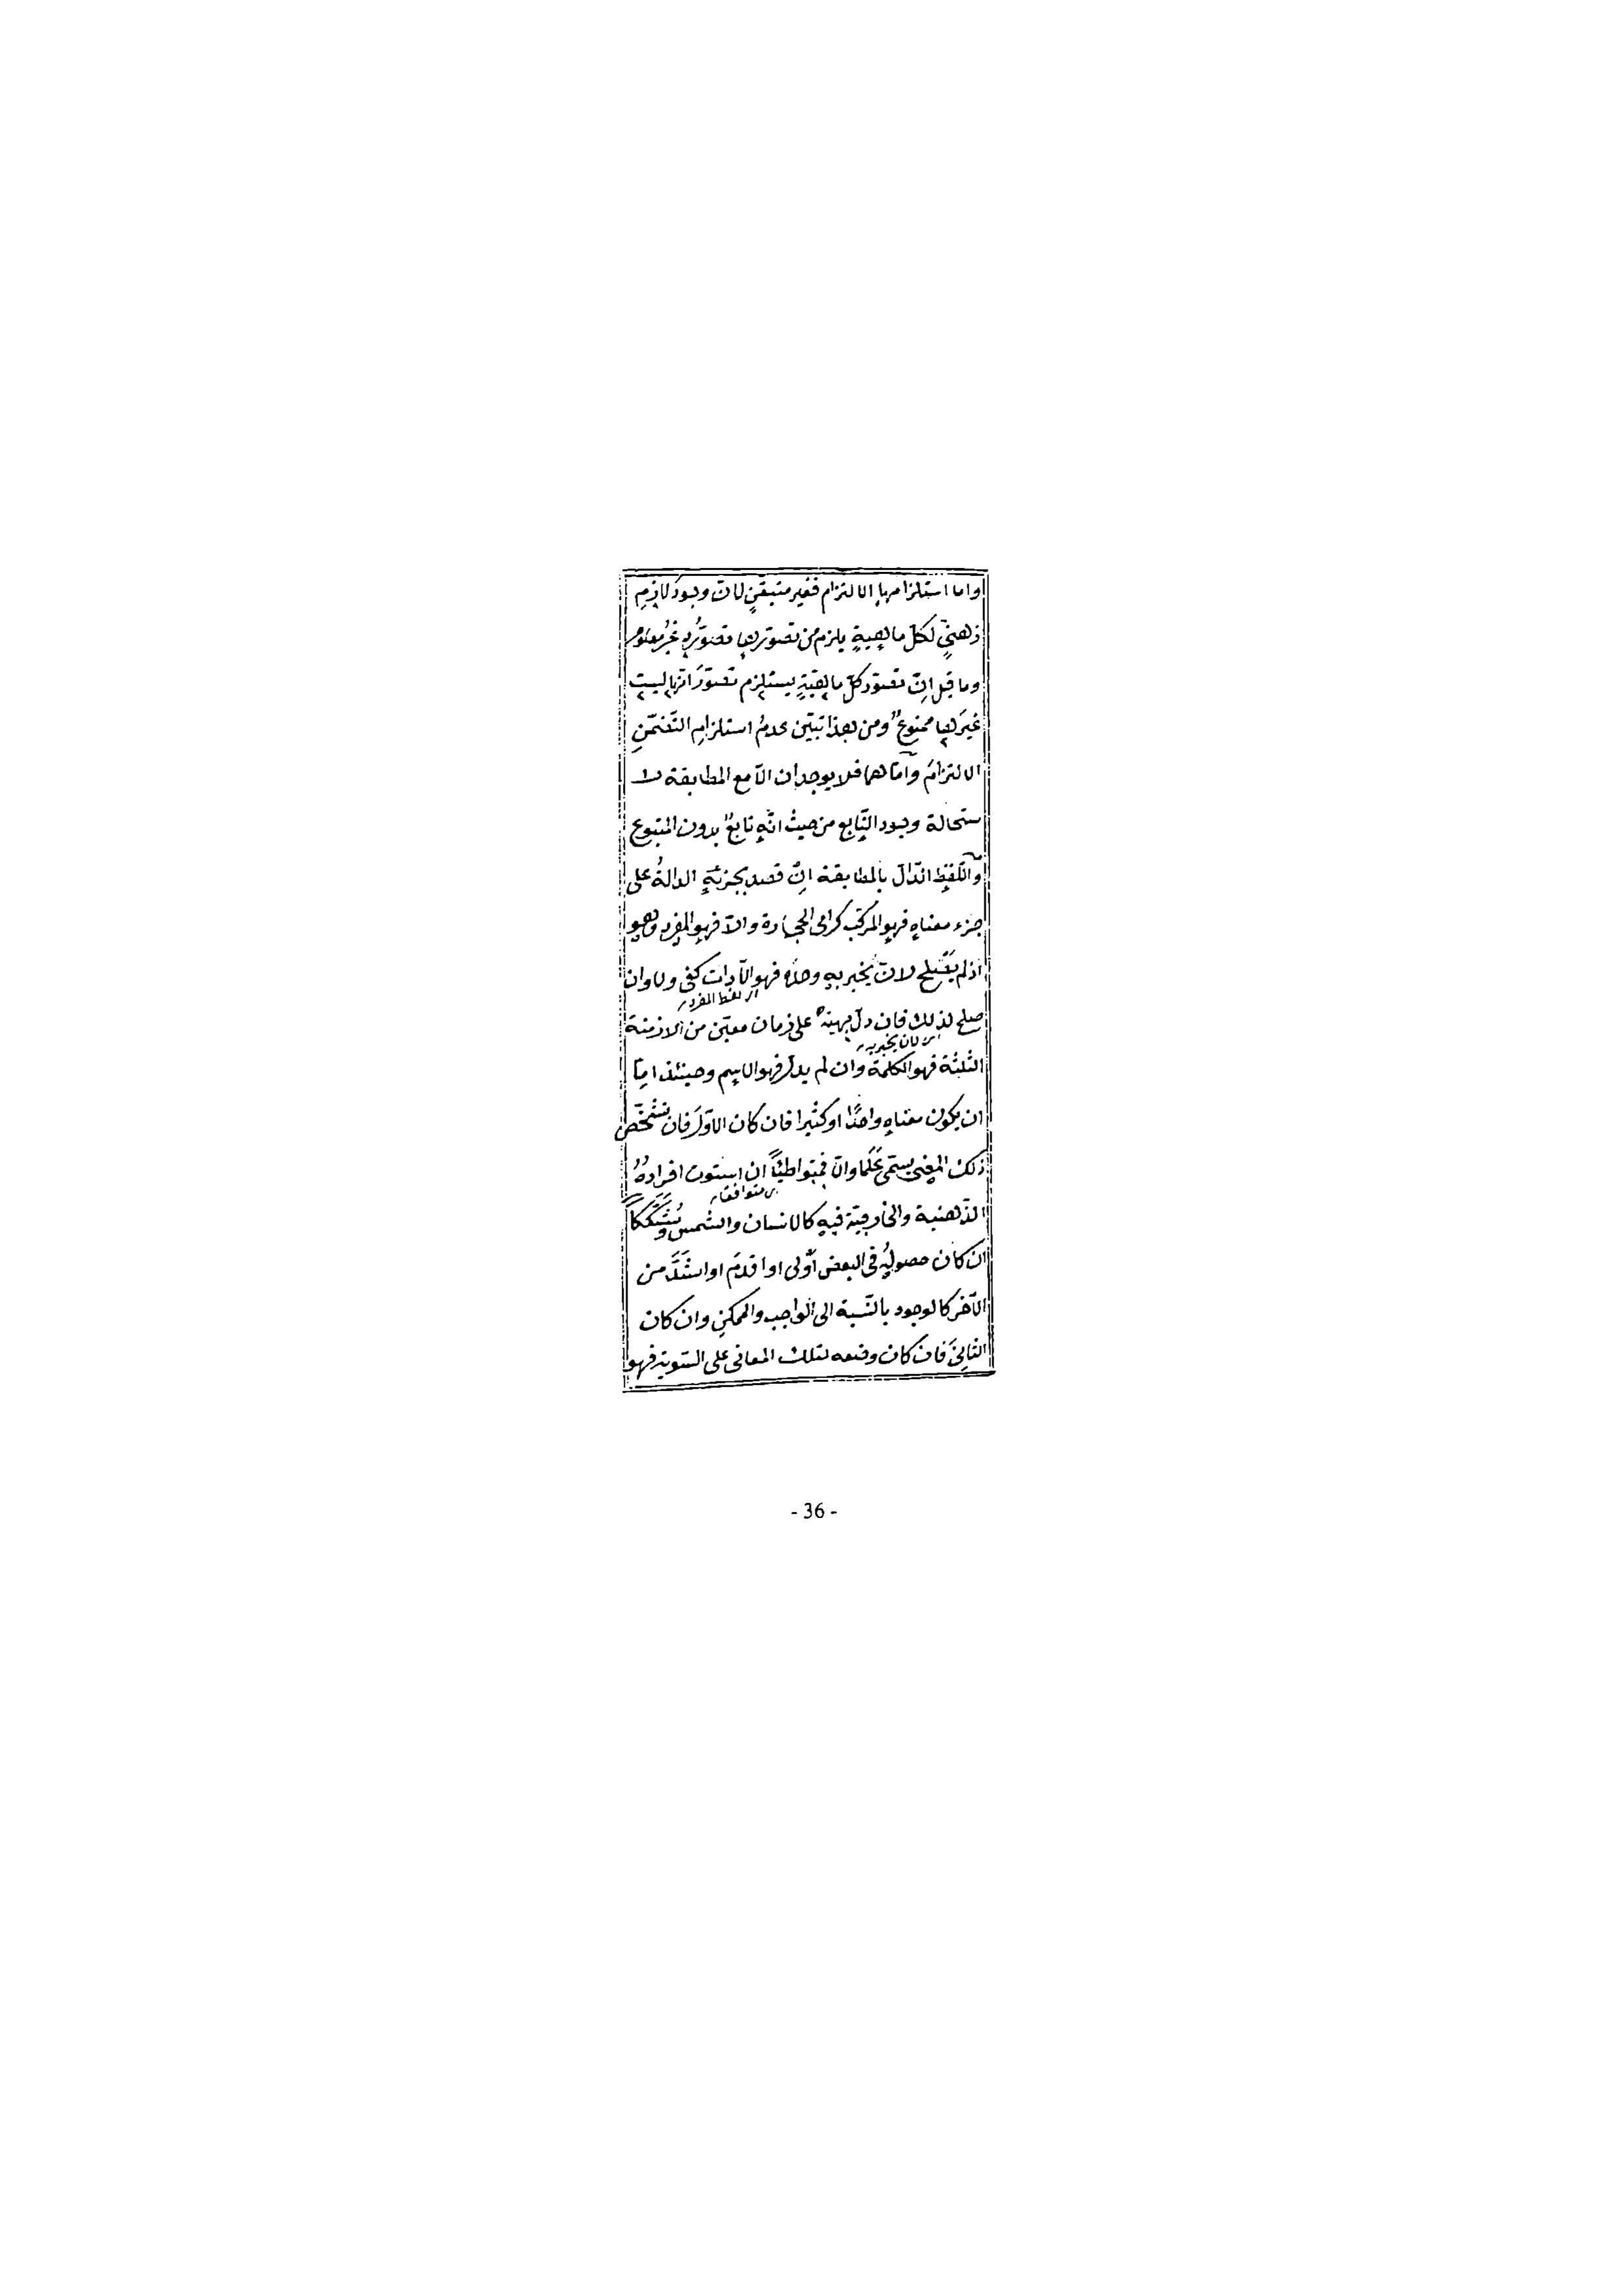 واما استلزامها الالتزام فغير متيقن لان وجود لازم
ذهني لكل ماهية يلزم من تصورها تصوره غير معلوم
وما قيل ان تصور كل ماهية يستلزم تصور انها ليست
غيرها ممنوع ومن هذا تبين عدم استلزام التضمن
الالتزام واما هما فلا يوجدان الا مع المطابقة لا
ستحالة وجود التابع من حيث انه تابع بدون المتبوع
واللفظ الدال بالمطابقة ان قصد بجزئه الدالة على
جزء معناه فهو المركب كرامى الحجارة والا فهو المفرد وهو
اذ لم يصلح لان يخبر به وحده فهو الادات كفى ولا وان
اى لفظ المفرد
صلح لذلك فان دل بهيئة على زمان معين من الازمنة
اى لان يخبر به
الثلثة فهو الكلمة وان لم يدل فهو الاسم وحينئذ اما
ان يكون معناه واحدا او كثيرا فان كان الاول فان تشخص
ذلك المعنى يسمى علما والا فمتواطئا ان استوت افراده
متوافقا
الذهنية والخارجية فيه كالانسان والشمس ومشككا
ان كان حصوله فى البعض اولى او اقدم او اشد من
الآخر كالوجود بالنسبة الى الواجب والممكن وان كان
الثانى فان كان وضعه لتلك المعانى على السوية فهو
- 36 -